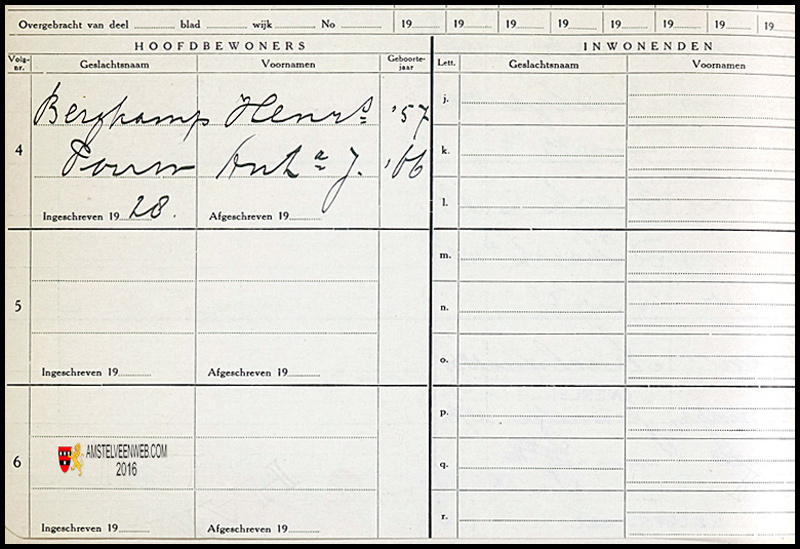 Overgebracht van deel blad wijk No 19 19 19 19 19 19 19 19
HOOFDBEWONERS INWONENDEN
Volg-nr. Geslachtsnaam Voornamen Geboorte-jaar Lett. Geslachtsnaam Voornamen
j.
Bergkamp Henrs '57
4 k.
Pouw Anta J. '66
l.
Ingeschreven 1928. Afgeschreven 19
m.
5 n.
o.
Ingeschreven 19 Afgeschreven 19
p.
AMSTELVEENWEB.COM
6 2016 q.
r.
Ingeschreven 19 Afgeschreven 19